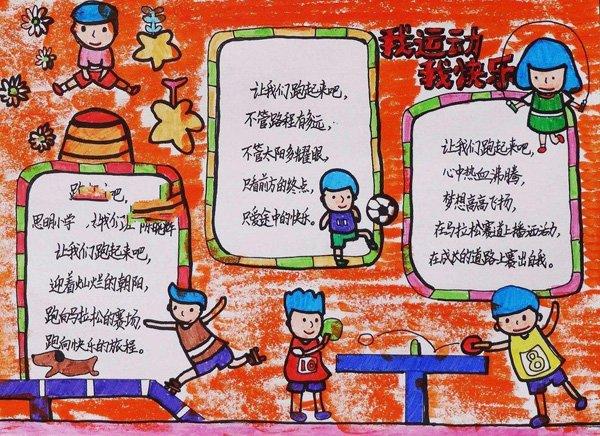 我运动
我快乐
让我们跑起来吧，
不管路程有多远，
不管太阳多耀眼，
只看前方的终点，
只爱途中的快乐。
让我们跑起来吧，
心中热血沸腾，
梦想高高飞扬，
在马拉松赛道上播远运动，
在成长的道路上赛出自我。
跑 吧，
思明小学 让我们
让我们跑起来吧，
迎着灿烂的朝阳，
跑向马拉松的赛场
跑向快乐的旅程。
10
8